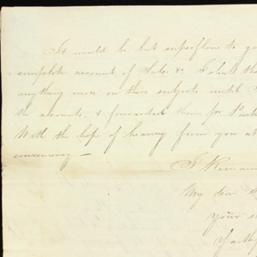 It would be but superflous to go
complete account of Sales &c I shall th
anything more on these subjects until
the accounts, & forwarded them for
With the hope of hearing from you at
convenency —
I Remain
My dear
your